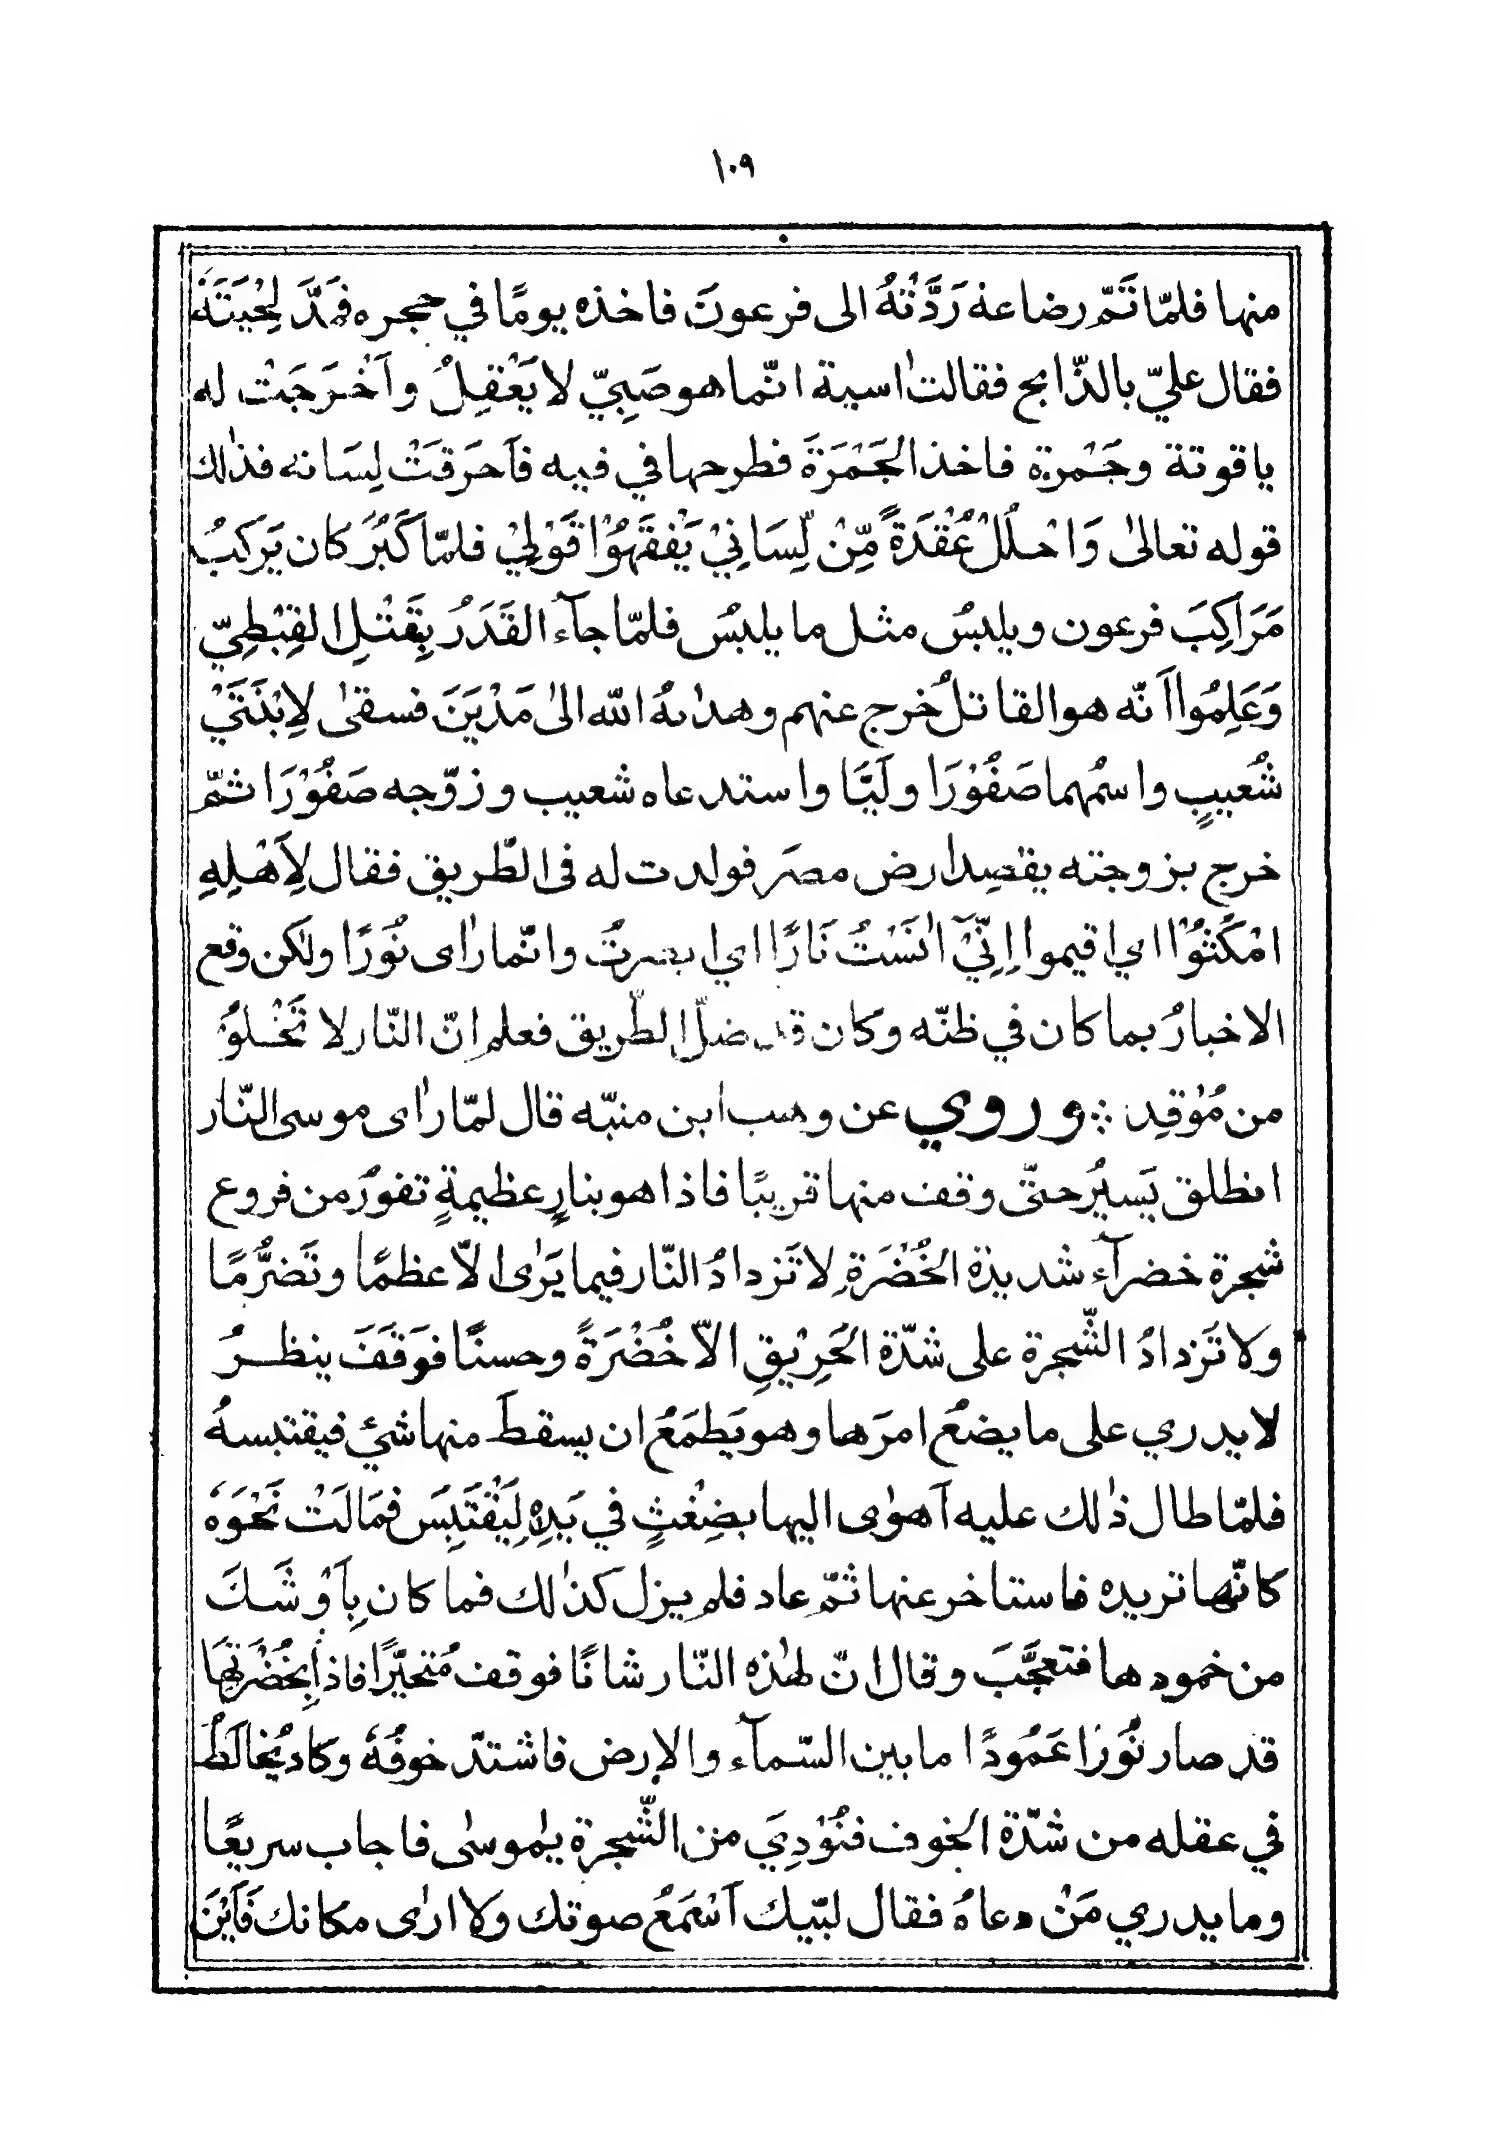 ١٠٩
منها فلمّا تَمّ رضاعه رَدَّتْهُ الى فرعونَ فاخذه يومًا في حجره فمَدَّ لِحْيَتَهٗ
فقال عليّ بالذّابح فقالتْ اسية انّما هو صَبِيّ لا يَعْقِلُ وأَخْرَجَتْ له
ياقوتة وجَمْرة فاخذ الجَمْرَةَ فطرحها في فيه فأَحرَقتْ لِسَانه فذٰلك
قوله تعالىٰ وَاحْلُلْ عُقْدَةً مِّنْ لِّسَانِيْ يَفْقَهُوْا قَوْلِيْ فلمّا كَبُرَ كان يَركبُ
مَرَاكِبَ فرعون ويلبسُ مثل ما يلبسُ فلمّا جآء القَدَرُ بِقَتْلِ القِبْطِيّ
وَعَلِمُوا أَنّه هو القاتلُ خرج عنهم وهداهُ الله الىٰ مَدْيَنَ فسقىٰ لِابْنَتَيْ
شُعيبٍ واسمُهما صَفُوْرَا ولَيَّا واستدعاه شعيب وزوّجه صَفُوْرَا ثمّ
خرج بزوجته يقصِد ارض مصَر فولدت له فى الطّريق فقال لِأَهْلِهِ
امْكُثُوْا اي اقيموا إِنِّيْٓ اٰنَسْتُ نَارًا اي ابصرتُ وانّما راٰى نُورًا ولٰكن وقع
الاخبارُ بما كان في ظنّه وكان قد ضلّ الطّريق فعلم انّ النّار لا تَخْلوُ
من مُوْقِد ؞ وروي عن وهب ابن منبّه قال لمّا راٰى موسى النّار
انطلق يَسيرُ حتّى وقف منها قريبًا فاذا هو بنارٍ عظيمةٍ تفورُ من فروع
شجرة خضرآء شديدة الخُضْرَةِ لا تَزدادُ النّار فيما يَرٰى الّا عظمًا وتَضرُّمًا
ولا تَزدادُ الشّجرة على شدّة الحَرِيْقِ الّا خُضْرَةً وحسنًا فوَقَفَ ينظرُ
لا يدري على ما يضعُ امرَها وهو يَطمَعُ ان يسقطَ منها شئ فيقتبسهُ
فلمّا طال ذٰلك عليه أَهوٰى اليها بضِغْثٍ في يَدِهٖ لِيَقْتَبِسَ فمَالَتْ نَحْوَهٗ
كانّها تريده فاستاخر عنها ثمّ عاد فلم يزل كذٰلك فما كان بِأَوْشَكَ
من خمودها فتعجَّبَ وقال انّ لهٰذه النّار شانًا فوقف مُتحيّرًا فاذا بِخُضْرَتِهَا
قد صار نُوْرًا عَمُودًا ما بين السّمآء والارض فاشتدّ خوفُهٗ وكاد يُخالَطُ
في عقله من شدّة الخوف فنُوْدِيَ من الشّجرة يٰموسٰى فاجاب سريعًا
وما يدري مَنْ دعاهُ فقال لبّيك أَسْمَعُ صوتك ولا ارٰى مكانك فَأَيْنَ